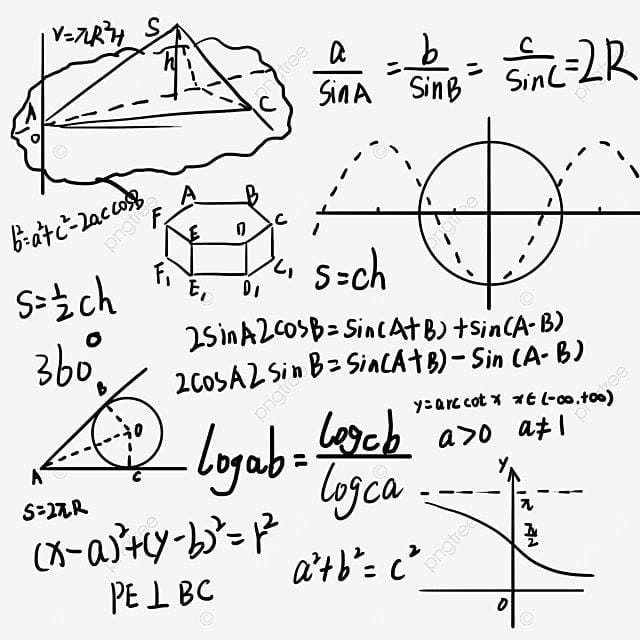 V=πR²H
S
h
A
O
C
a/SinA = b/SinB = c/SinC = 2R
b²=a²+c²-2ac cosB
A B
F E D C
F₁ E₁ D₁ C₁
S=ch
S=½ch
360°
2SinA2cosB=Sin(A+B)+Sin(A-B)
2cosA2SinB=Sin(A+B)-Sin(A-B)
y=arccotx x∈(-∞.+∞)
a>0 a≠1
B
O
A C
logab=logcb/logca
S=2πR
(x-a)²+(y-b)²=r²
a²+b²=c²
PE⊥BC
y
π
π/2
O
pngtree